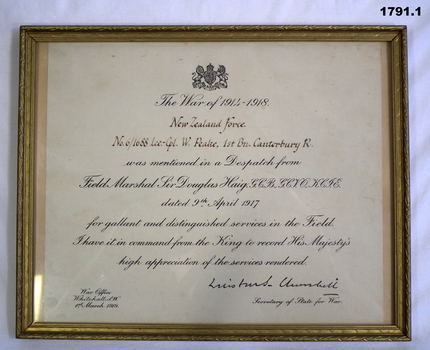 1791.1
The War of 1914-1918.
New Zealand Force
No. 6/1688 Lce-Cpl. W. Peake, 1st Bn. Canterbury R.
was mentioned in a Despatch from
Field Marshal Sir Douglas Haig, G.C.B., G.C.V.O., K.C.I.E.
dated 9th April 1917
for gallant and distinguished services in the Field.
I have it in command from the King to record His Majesty's
high appreciation of the services rendered.
Winston S. Churchill
War Office
Whitehall, S.W.
1st March 1919.
Secretary of State for War.